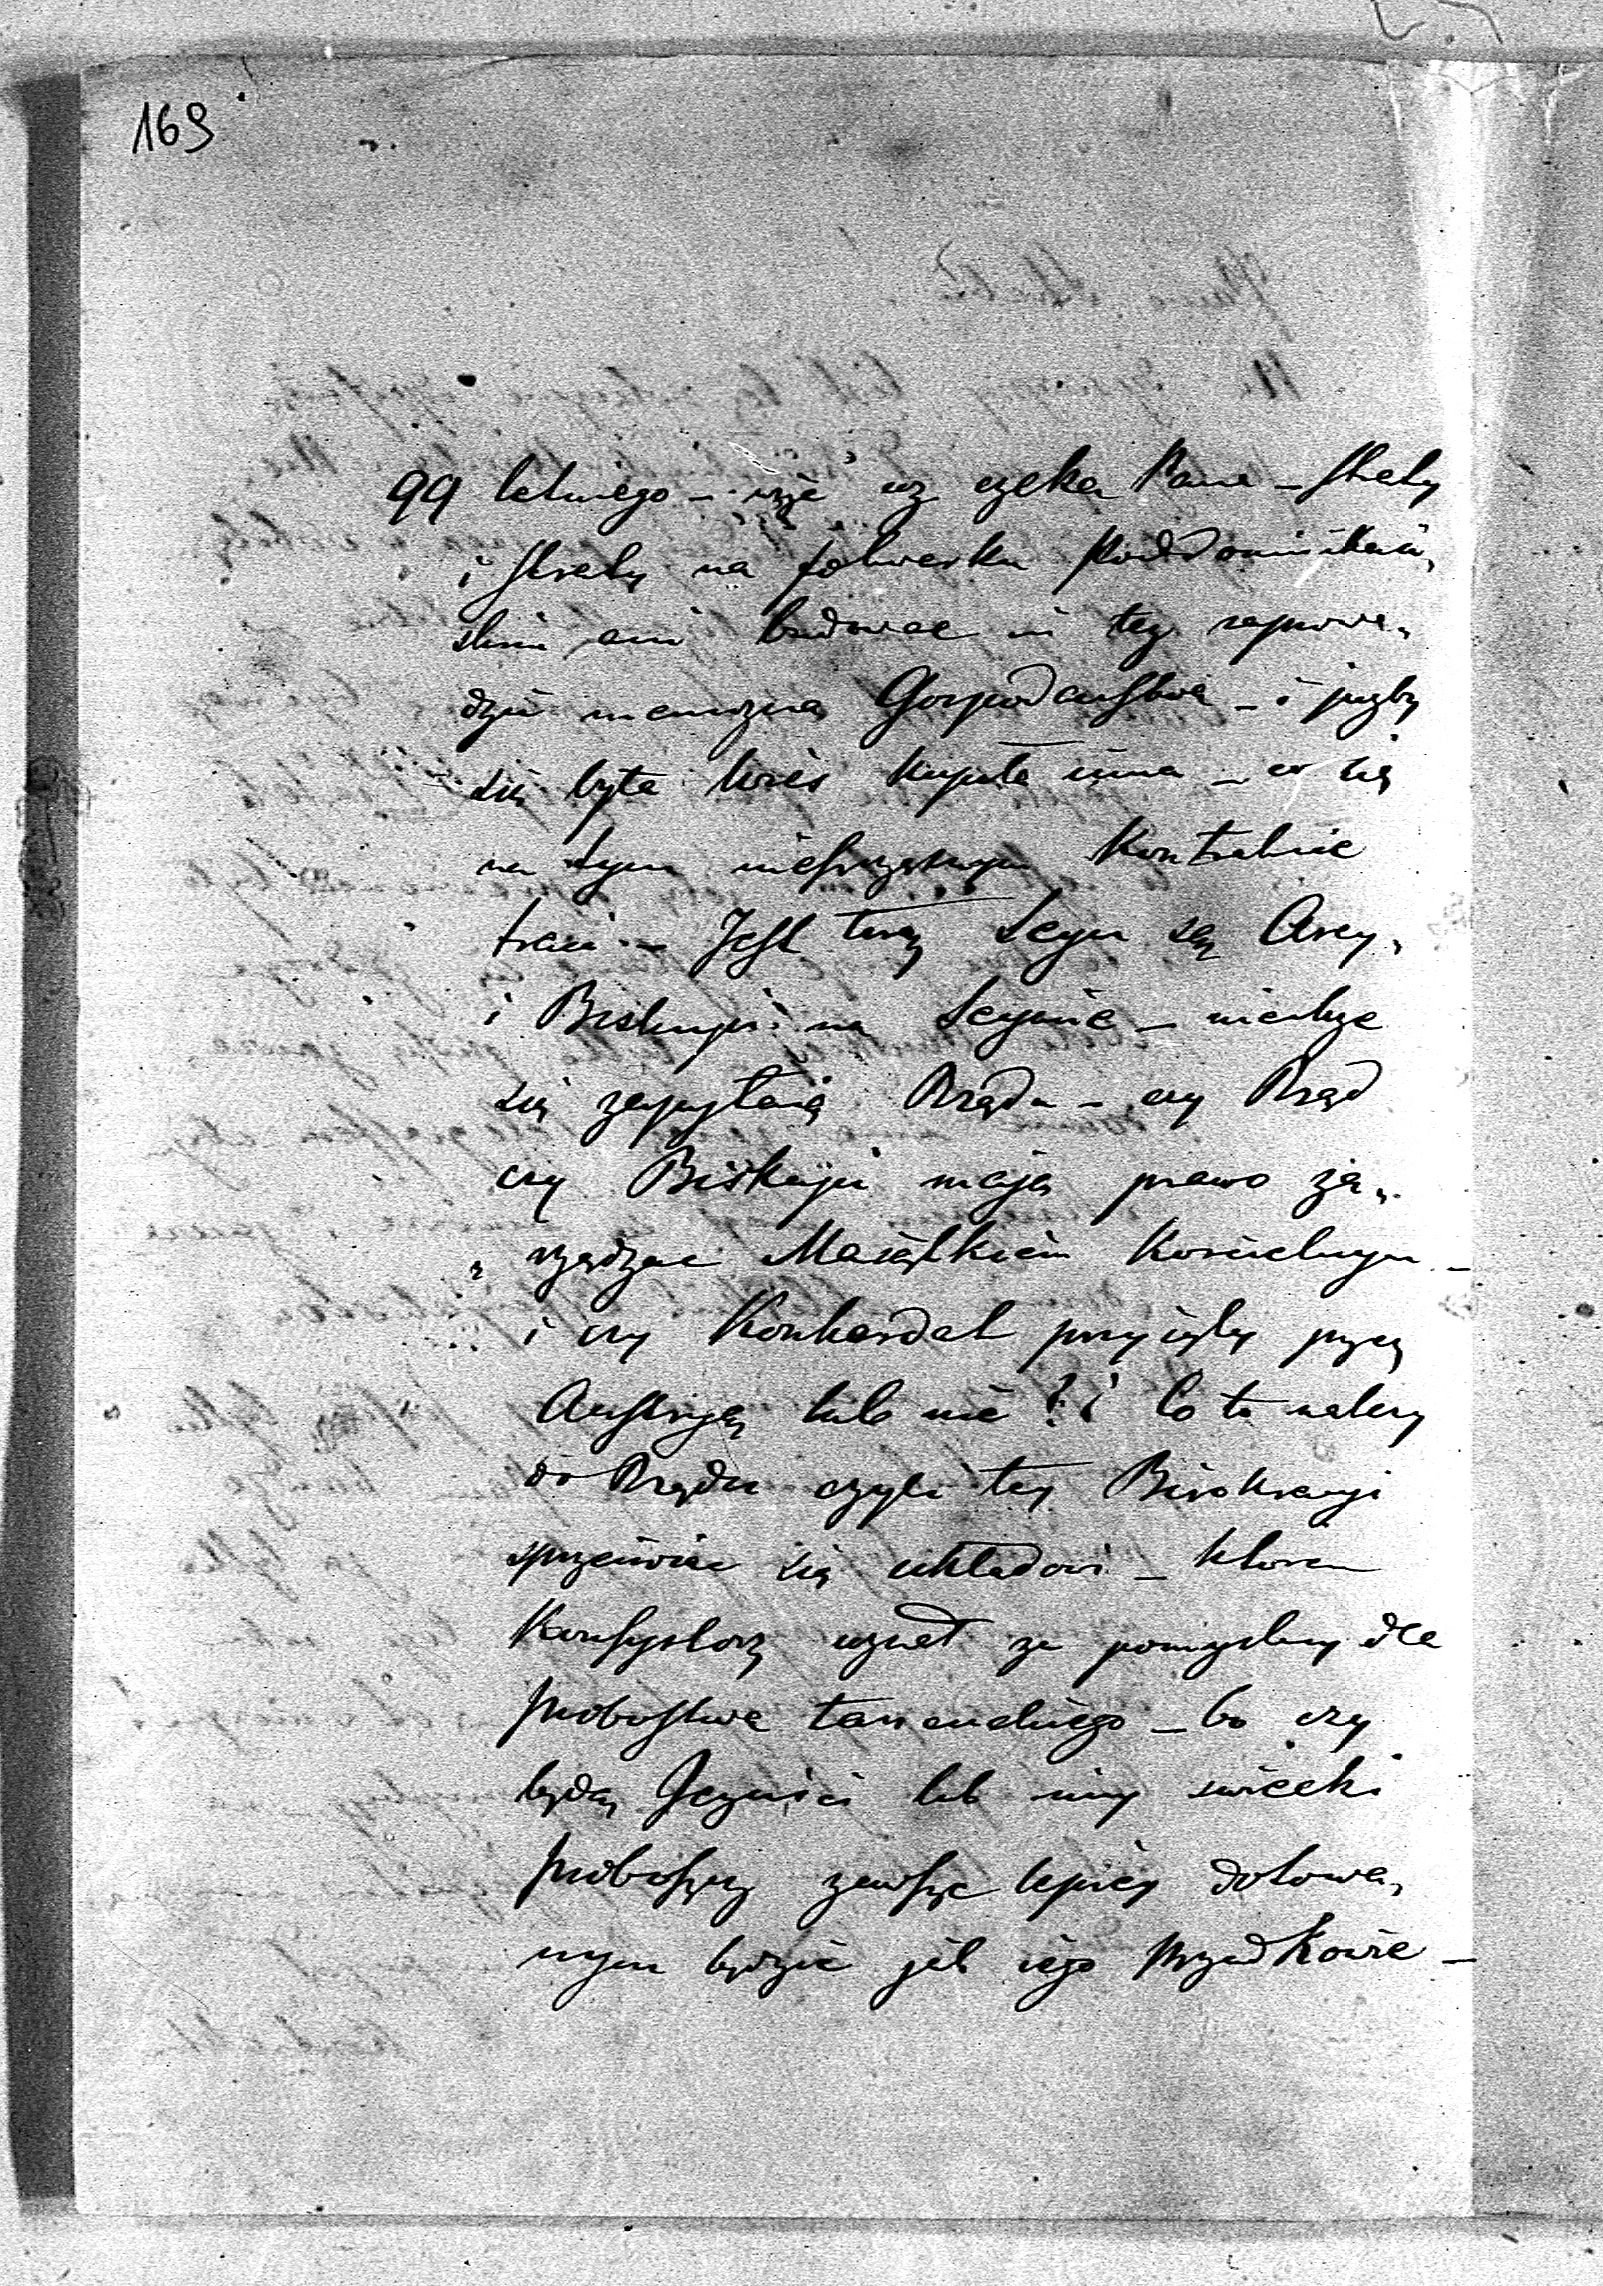 169
99 letniego – iżże uż czeka Pana – straty
i straty na folwarku Poddominikań„
skim ani budować ni tez zapowa„
dzić niemożna Gospodarstwa – i juzby
się była wieś kupiła inna – co się
na tym nieszczęsnym Kontrakcie
traci – Jest teraz Seym są Arcy„
i Biskupi na Seymie – niechże
się zapytaią Rządu – czy Rząd
czy Biskupi mają prawo za„
„rządzac Maiątkiem Koscielnym –
i czy Konkordat przyięty przez
Austryą lub nie ? i Co to nalezy
do Rządu czyli tez Birokracyi
sprzeciwiac się układowi – ktoren
Konsystorz uznał za pomyslny dla
probostwa Łancuckiego – bo czy
będą Jezuici lub inny swiecki
proboszcz zawsze lepiey dotowa„
nym będzie jak iego przodkowie –